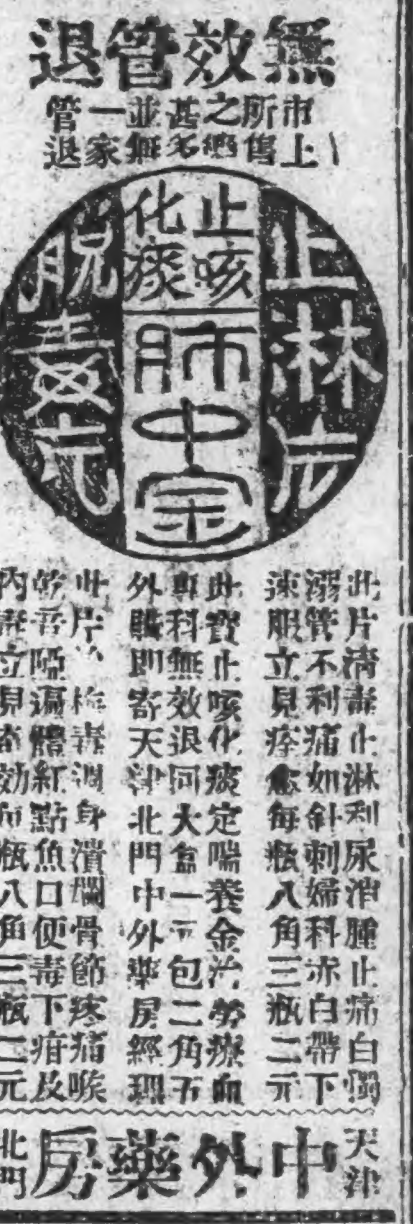 無效管退
市上
所售
之藥
甚多
並無
一家
管退
止淋片
止咳
化痰
肺中宗
脫毒片
此片淸毒止淋利尿消腫止痛白濁
溺管不利痛如針刺婦科赤白帶下
速服立見痊愈每瓶八角三瓶二元
此寶止咳化痰定喘養金治勞療血
專科無效退回大盒一元包二角五
外購即寄天津北門中外藥房經理
此片 梅毒週身潰爛骨節疼痛喉
乾音啞遍體紅點魚口便毒下疳及
內毒立見奇効每瓶八角三瓶二元
天津
中外藥房
北門